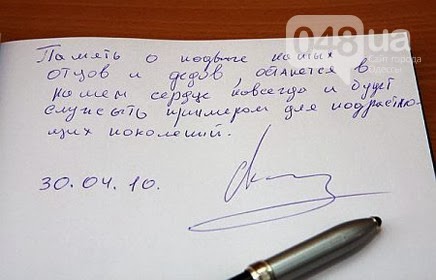 048.ua
Сайт города
Одессы
Память о подвиге наших
отцов и дедов, останется в
нашем сердце навсегда и будет
служить примером для подрастаю-
щих поколений.
30.04.10.